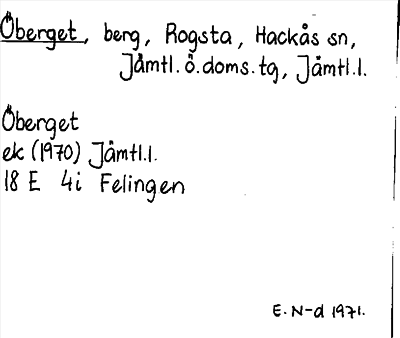 Öberget, berg, Rogsta, Hackås sn,
Jämtl. ö. doms. tg, Jämtl. l.
Öberget
ek (1970) Jämtl. l.
18 E 4i Felingen
E. N-d 1971.